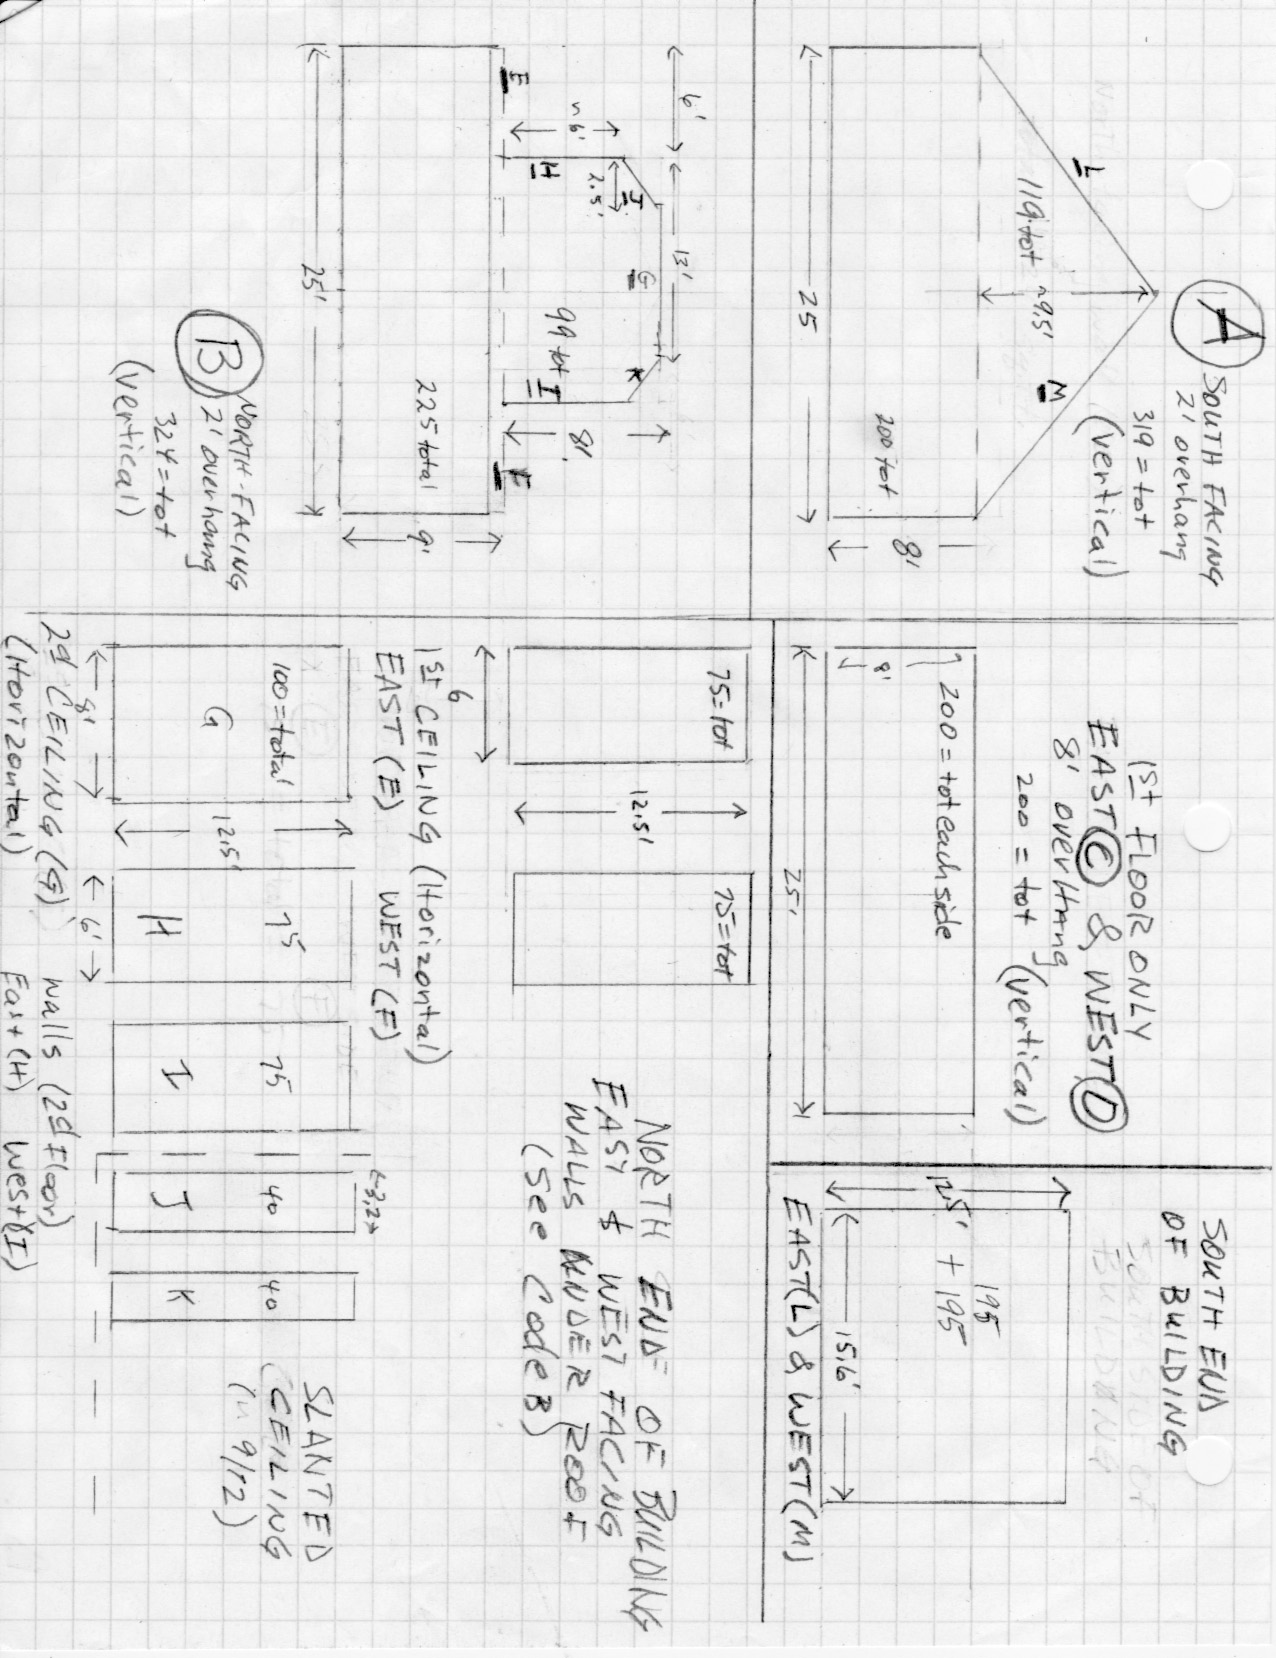 A
SOUTH FACING
2' overhang
319 = tot
(vertical)
L
M
119 tot
~9.5'
200 tot
25
8'
1st FLOOR ONLY
EAST (C) & WEST (D)
8' overHang
200 = tot (vertical)
200 = tot each side
8'
25'
SOUTH END
OF BUILDING
12.5'
195
+ 195
15.6'
EAST (L) & WEST (M)
6'
13'
E
~6'
H
2.5'
J
G
99 tot
K
I
8'
F
225 total
9'
25'
B
NORTH-FACING
2' overhang
324 = tot
(vertical)
75 = tot
75 = tot
12.5'
6
1st CEILING (Horizontal)
EAST (E) WEST (F)
NORTH END OF BUILDING
EASY & WEST FACING
WALLS UNDER ROOF
(See Code B)
100 = total
G
12.5'
8'
2d CEILING (G)
(Horizontal)
75
H
6'
75
I
Walls (2d Floor)
East (H) West (I)
←3.2→
40
J
40
K
SLANTED
CEILING
(~ 9/12)